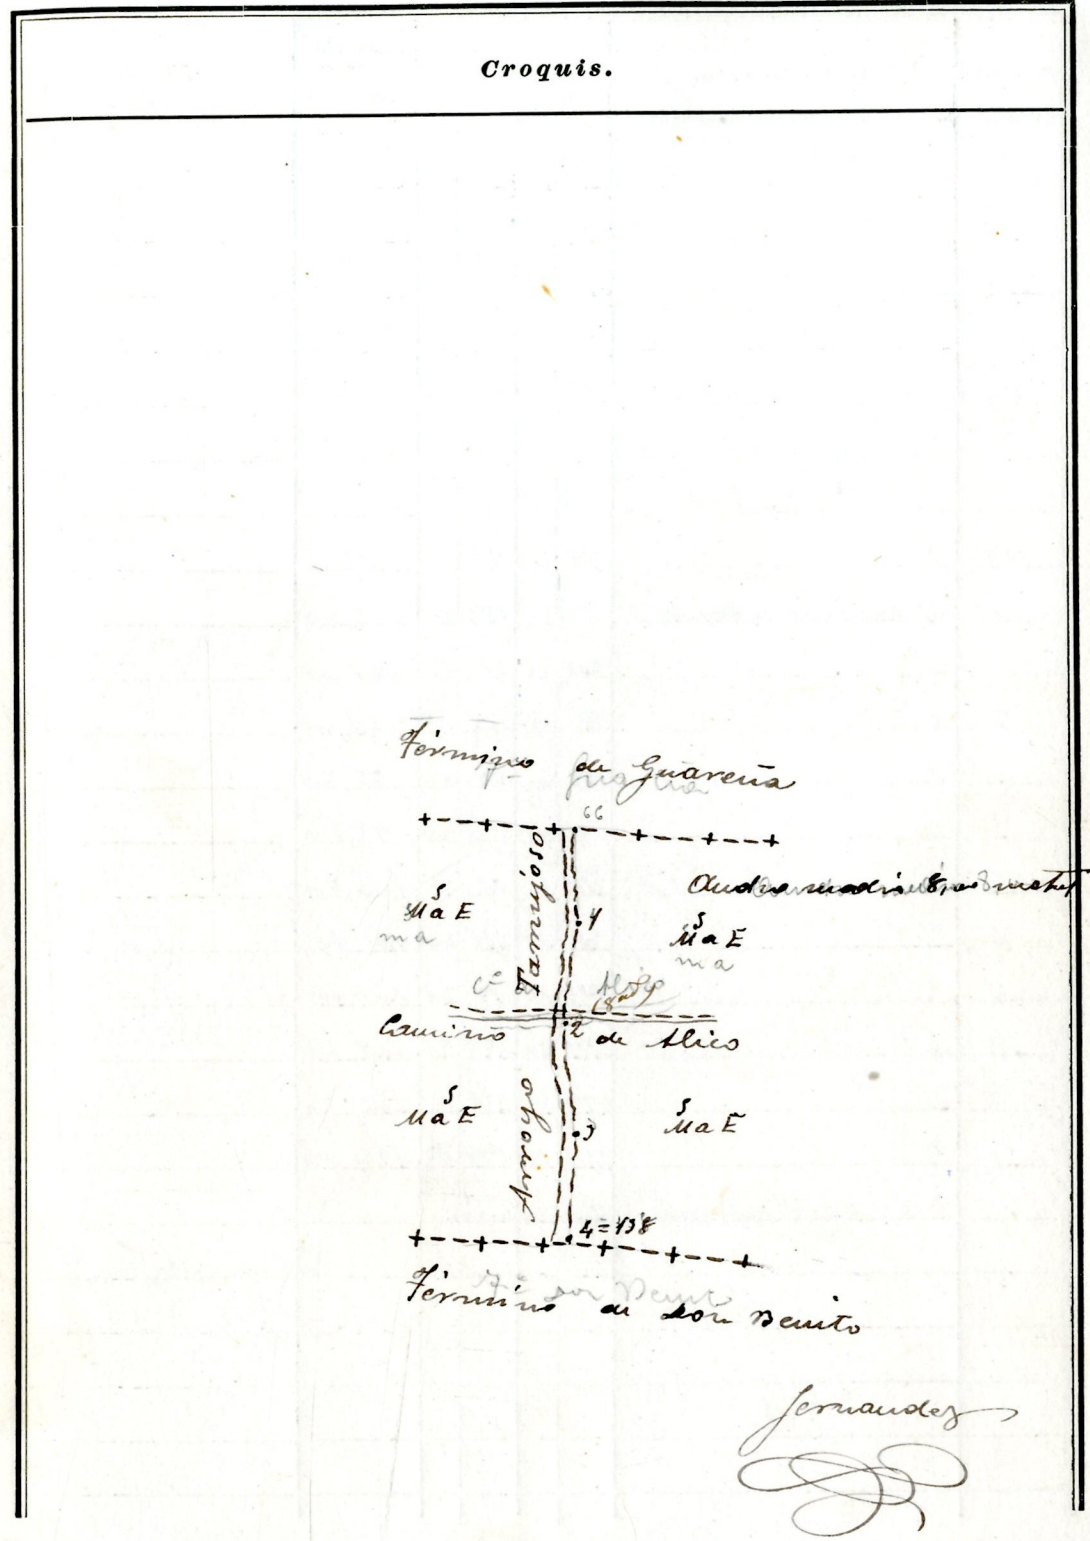 Croquis.
Término de Guareña
66
Tamurjoso
S
Ma E
ma
1
S
Ma E
ma
Camino 2 de Alico
S
Ma E
S
Ma E
3
4=138
Término de Don Benito
Fernandez